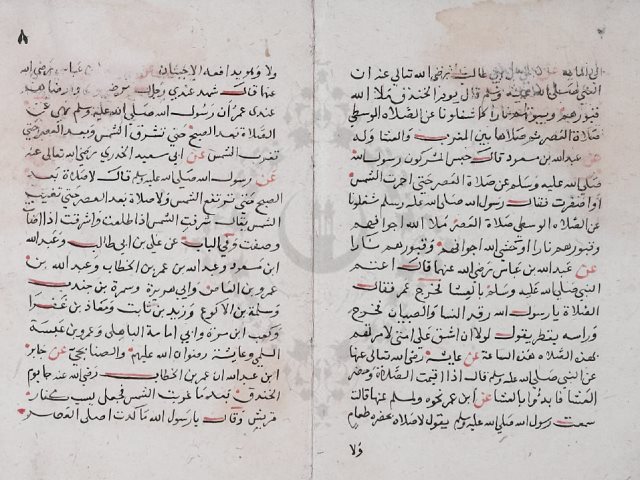 الى المائه عن علي بن ابي طالب رضي الله تعالى عنه ان
النبي صلى الله عليه وسلم قال يوم الخندق ملا الله
قبورهم وبيوتهم نارا كما شغلونا عن الصلاة الوسطى
صلاة العصر ثم صلاها بين المغرب والعشا وله
عن عبدالله بن مسعود قال حبس المشركون رسول الله
صلى الله عليه وسلم عن صلاة العصر حتى احمرت الشمس
او اصفرت فقال رسول الله صلى الله عليه وسلم شغلونا
عن الصلاة الوسطى صلاة العصر ملا الله اجوافهم
وقبورهم نارا او حشى الله اجوافهم وقبورهم نارا
عن عبد الله بن عباس رضي الله عنهما قال اعتم
النبي صلى الله عليه وسلم بالعشا فخرج عمر فقال
الصلاة يارسول الله رقد النسا والصبيان فخرج
وراسه يقطر يقول لولا ان اشق على امتي لامرتهم
بهذه الصلاة هذه الساعة عن عايشة رضي الله تعالى عنها
عن النبي صلى الله عليه وسلم قال اذا اقيمت الصلاة وحضر
العشا فابدوا بالعشا عن ابن عمر نحوه ولمسلم عنها قالت
سمعت رسول الله صلى الله عليه وسلم يقول لا صلاة بحضرة طعام
ولا
٨
ولا وهو يدافعه الاخبثان عن عباس رضي الله
عنهما قال شهد عندي رجال مرضيون وارضاهم
عندي عمر أن رسول الله صلى الله عليه وسلم نهى عن
الصلاة بعد الصبح حتى تشرق الشمس وبعد العصر حتى
تغرب الشمس عن ابي سعيد الخدري رضي الله تعالى عنه
عن رسول الله صلى الله عليه وسلم قال لا صلاة بعد
الصبح حتى ترتفع الشمس ولا صلاة بعد العصر حتى تغيب
الشمس يقال شرقت الشمس اذا طلعت واشرقت اذا اضات
وصفت وفي الباب عن علي بن ابي طالب وعبدالله
ابن مسعود وعبدالله بن عمر بن الخطاب وعبد الله بن
عمرو بن العاص وابي هريرة وسمرة بن جندب
وسلمة بن الاكوع وزيد بن ثابت ومعاذ بن عفرا
وكعب ابن مرة وابي امامة الباهلي وعمرو بن عبسة
السلمي وعايشة رضوان الله عليهم والصنابحي عن جابر
ابن عبدالله ان عمر بن الخطاب رضي الله عنه جا يوم
الخندق بعد ما غربت الشمس فجعل يسب كفار
قريش وقال يارسول الله ما كدت اصلي العصر